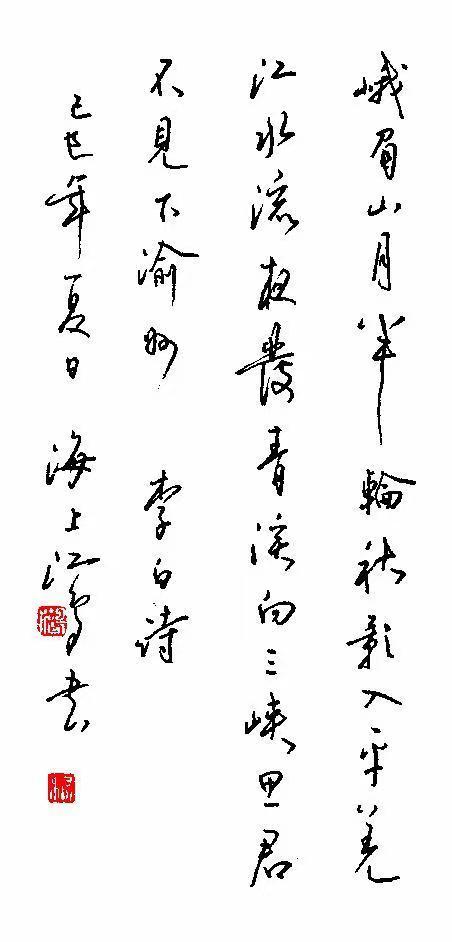 峨眉山月半輪秋影入平羌
江水流夜發青溪向三峽思君
不見下渝州 李白詩
己巳年夏日 海上江書